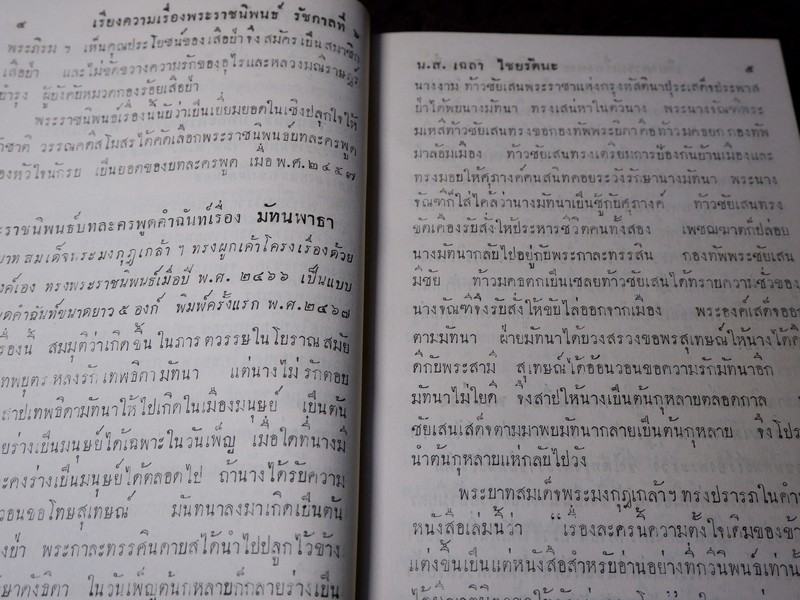 ๔ เรียงความเรื่องพระราชนิพนธ์ รัชกาลที่ ๖
พระภิรม ฯ เห็นคุณประโยชน์ของเสือป่า จึงสมัครเป็นสมาชิก
เสือป่า และไม่ขัดขวางความรักของอุไรและหลวงมณีราษฎร์
บำรุง ผู้บังคับหมวดกองร้อยเสือป่า
พระราชนิพนธ์เรื่องนี้นับว่าเป็นเยี่ยมยอดในเชิงปลุกใจให้
ชาติ วรรณคดีสโมสรได้คัดเลือกพระราชนิพนธ์บทละครพูด
หัวใจนักรบ เป็นยอดของบทละครพูด เมื่อ พ.ศ. ๒๔๕๗
ราชนิพนธ์บทละครพูดคำฉันท์เรื่อง มัทนพาธา
บาทสมเด็จพระมงกุฎเกล้า ฯ ทรงผูกเค้าโครงเรื่องด้วย
องค์เอง ทรงพระราชนิพนธ์เมื่อปี พ.ศ. ๒๔๖๖ เป็นแบบ
พูดคำฉันท์ขนาดยาว ๕ องก์ พิมพ์ครั้งแรก พ.ศ. ๒๔๖๗
เรื่องนี้ สมมุติว่าเกิดขึ้นในภารตวรรษในโบราณสมัย
เทพบุตร หลงรักเทพธิดามัทนา แต่นางไม่รักตอบ
สาปเทพธิดามัทนาให้ไปเกิดในเมืองมนุษย์ เป็นต้น
ร่างเป็นมนุษย์ได้เฉพาะในวันเพ็ญ เมื่อใดที่นางมี
คงร่างเป็นมนุษย์ได้ตลอดไป ถ้านางได้รับความ
วอนขอโทษสุเทษณ์ มันทนาลงมาเกิดเป็นต้น
ป่า พระกาละทรรศินดาบสได้นำไปปลูกไว้ข้าง
ษาดังธิดา ในวันเพ็ญต้นกุหลาบก็กลายร่างเป็น
น.ส. เฉลา ไชยรัตนะ ๕
นางงาม ท้าวชัยเสนพระราชาแห่งกรุงหัสดินาปุระเสด็จประพาส
ป่าได้พบนางมัทนา ทรงเสน่หาในตัวนาง พระนางจัณฑีพระ
มเหสีท้าวชัยเสนทรงขอกองทัพพระบิดาคือท้าวมคธยกกองทัพ
มาล้อมเมือง ท้าวชัยเสนทรงเตรียมการป้องกันบ้านเมืองและ
ทรงมอบให้ศุภางค์คนสนิทคอยระวังรักษานางมัทนา พระนาง
จัณฑีก็ใส่ไคล้ว่านางมัทนาเป็นชู้กับศุภางค์ ท้าวชัยเสนทรง
ขัดเคืองรับสั่งให้ประหารชีวิตคนทั้งสอง เพชฌฆาตก็ปล่อย
นางมัทนากลับไปอยู่กับพระกาละทรรสิน กองทัพพระชัยเสน
มีชัย ท้าวมคธตกเป็นเชลยท้าวชัยเสนได้ทราบความชั่วของ
นางจัณฑีจึงรับสั่งให้ขับไล่ออกจากเมือง พระองค์เสด็จออก
ตามมัทนา ฝ่ายมัทนาได้บวงสรวงขอพรสุเทษณ์ให้นางได้คืน
ดีกับพระสามี สุเทษณ์ได้อ้อนวอนขอความรักมัทนาอีก
มัทนาไม่ใยดี จึงสาปให้นางเป็นต้นกุหลาบตลอดกาล
ชัยเสนเสด็จตามมาพบมัทนากลายเป็นต้นกุหลาบ จึงโปร
นำต้นกุหลาบแห่กลับไปวัง
พระบาทสมเด็จพระมงกุฎเกล้าฯ ทรงปรารภในคำ
หนังสือเล่มนี้ว่า “เรื่องละครนี้ความตั้งใจเดิมของข้า
แต่งขึ้นเป็นแต่หนังสือสำหรับอ่านอย่างที่กวีนิพนธ์เท่านั้น